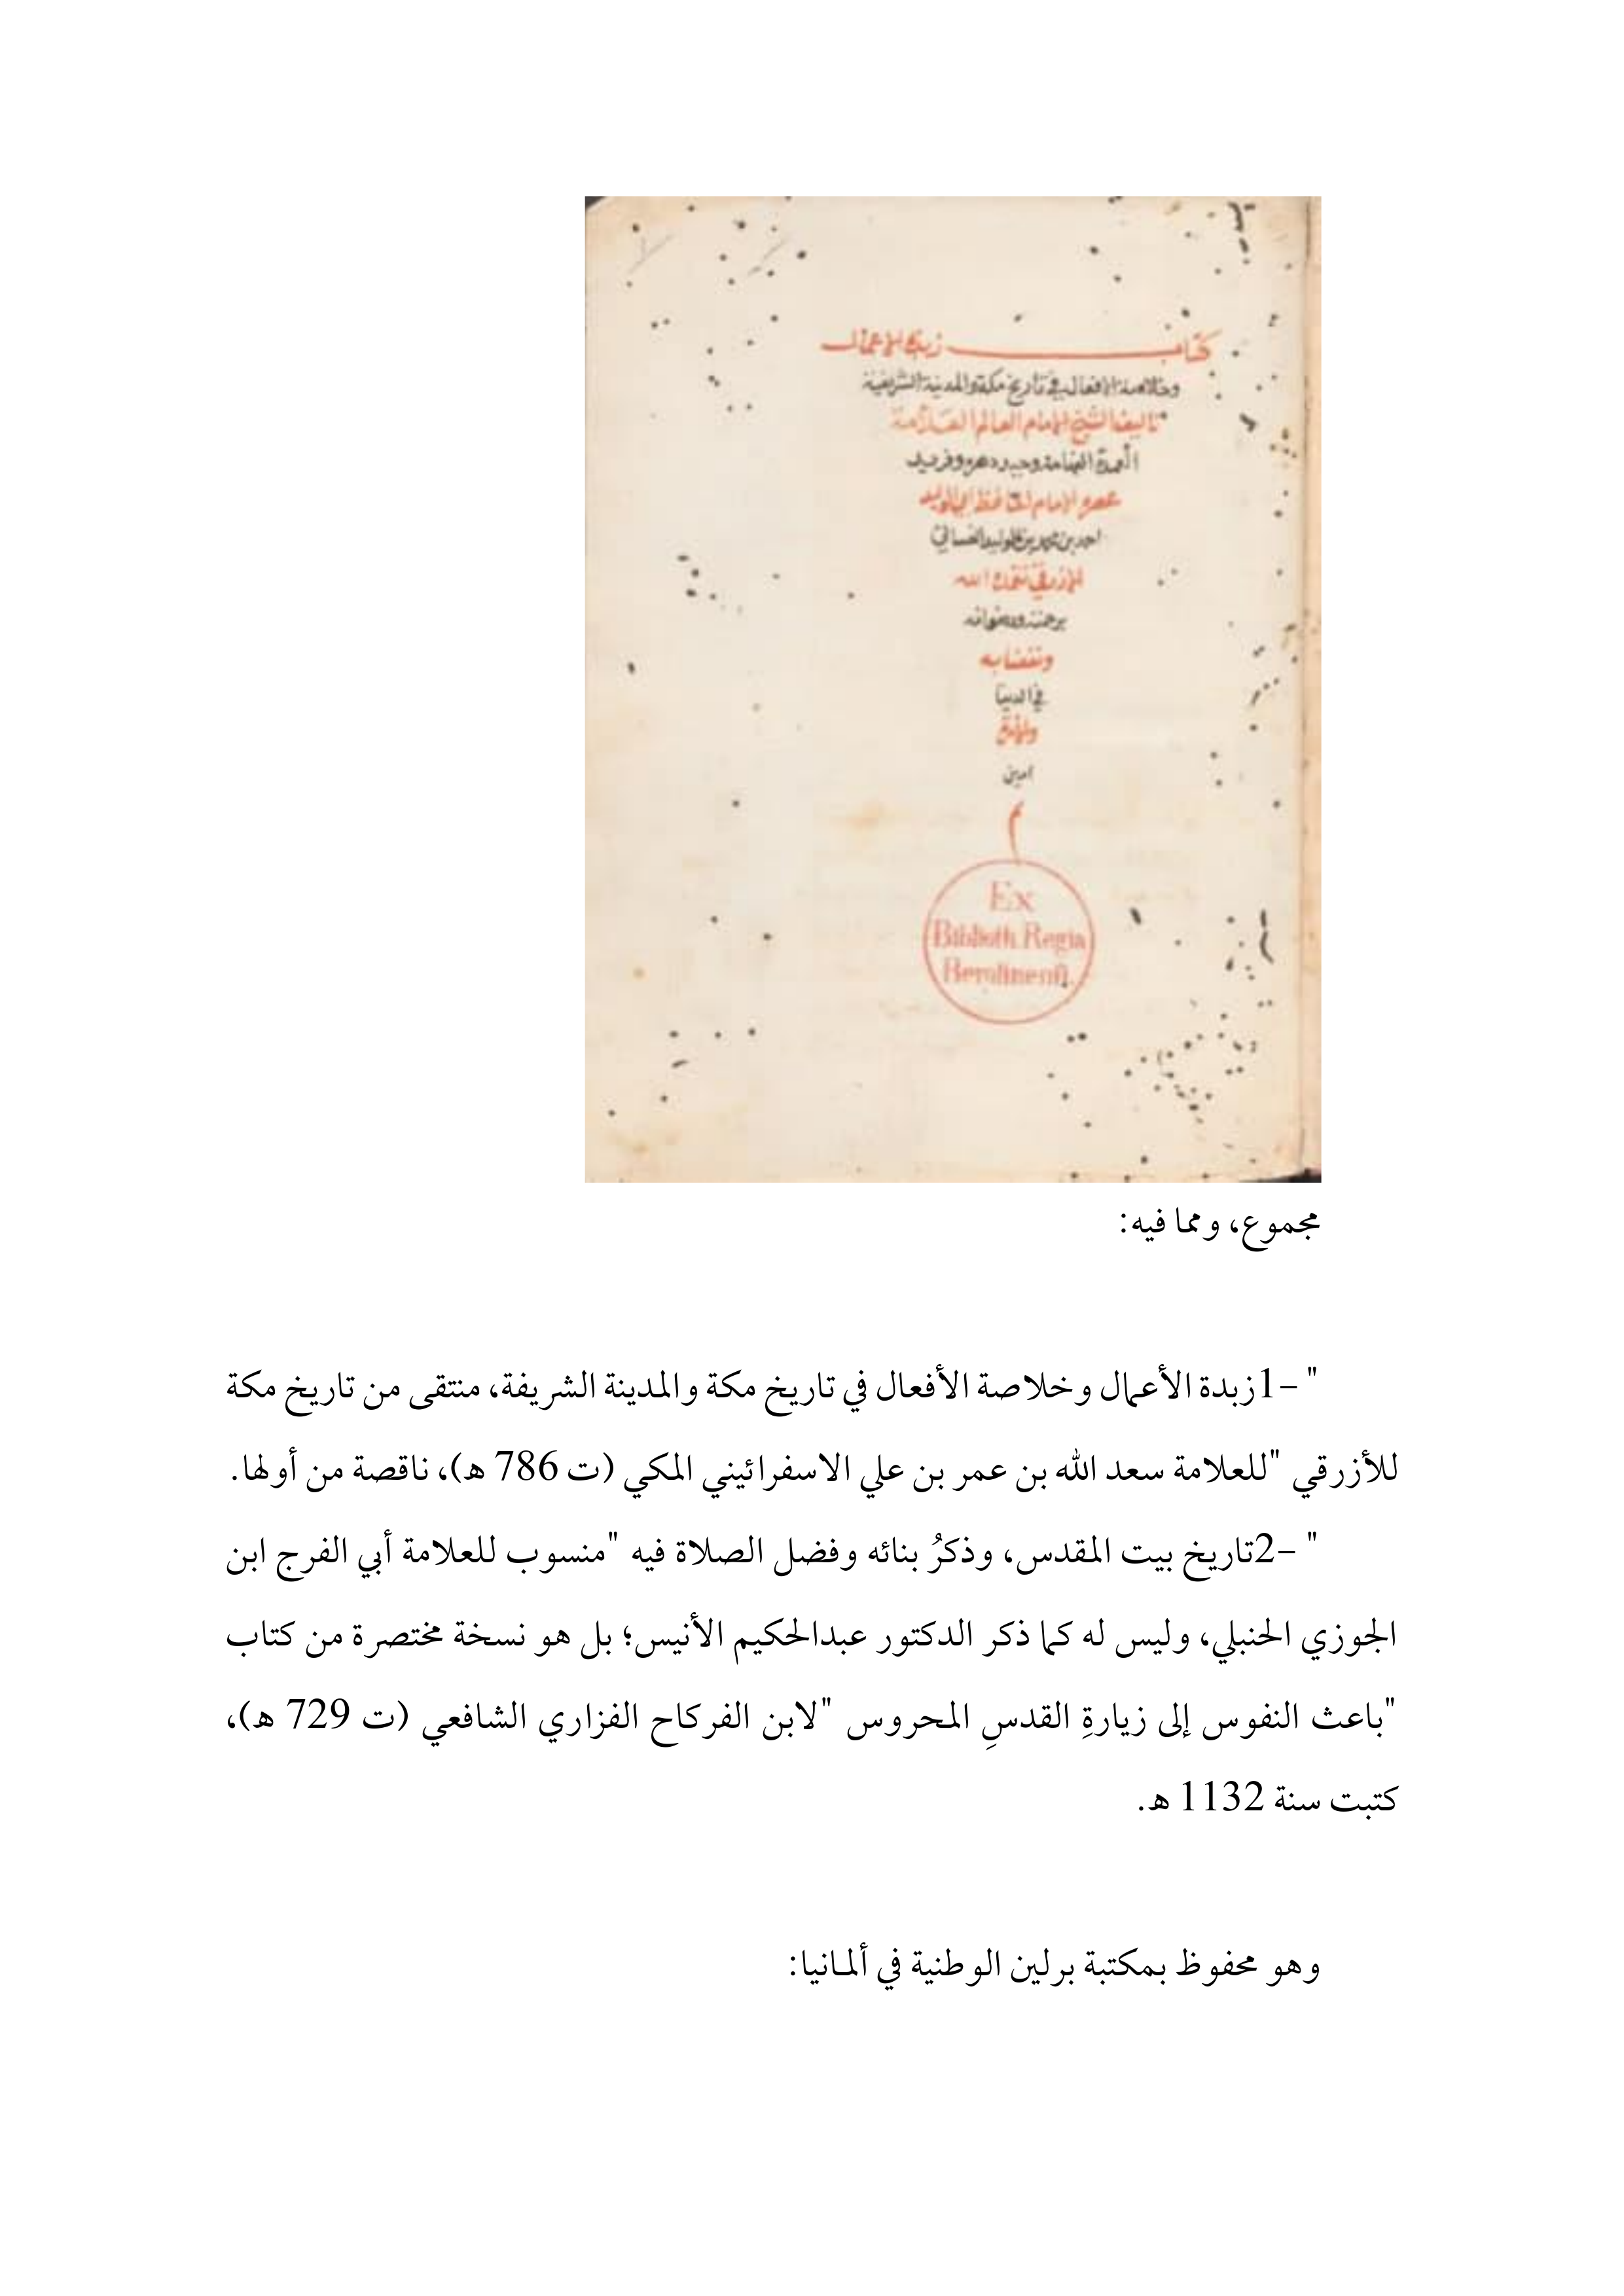 كتاب زبدة الاعمال
وخلاصة الافعال في تاريخ مكة والمدينة الشريفة
تاليف الشيخ الامام العالم العلامة
العمدة الفهامة وحيد دهره وفريد
عصره الامام الحافظ ابي الوليد
احمد بن محمد بن الوليد الغساني
الازرقي تغمده الله
برحمته ورضوانه
ونفعنا به
في الدنيا
والاخرة
امين
م
Ex
Biblioth. Regia
Berolinenſi.
مجموع، ومما فيه:
" –1زبدة الأعمال وخلاصة الأفعال في تاريخ مكة والمدينة الشريفة، منتقى من تاريخ مكة
للأزرقي "للعلامة سعد الله بن عمر بن علي الاسفرائيني المكي (ت 786 ه)، ناقصة من أولها.
" –2تاريخ بيت المقدس، وذكرُ بنائه وفضل الصلاة فيه "منسوب للعلامة أبي الفرج ابن
الجوزي الحنبلي، وليس له كما ذكر الدكتور عبدالحكيم الأنيس؛ بل هو نسخة مختصرة من كتاب
"باعث النفوس إلى زيارةِ القدسِ المحروس "لابن الفركاح الفزاري الشافعي (ت 729 ه)،
كتبت سنة 1132 ه.
وهو محفوظ بمكتبة برلين الوطنية في ألمانيا: